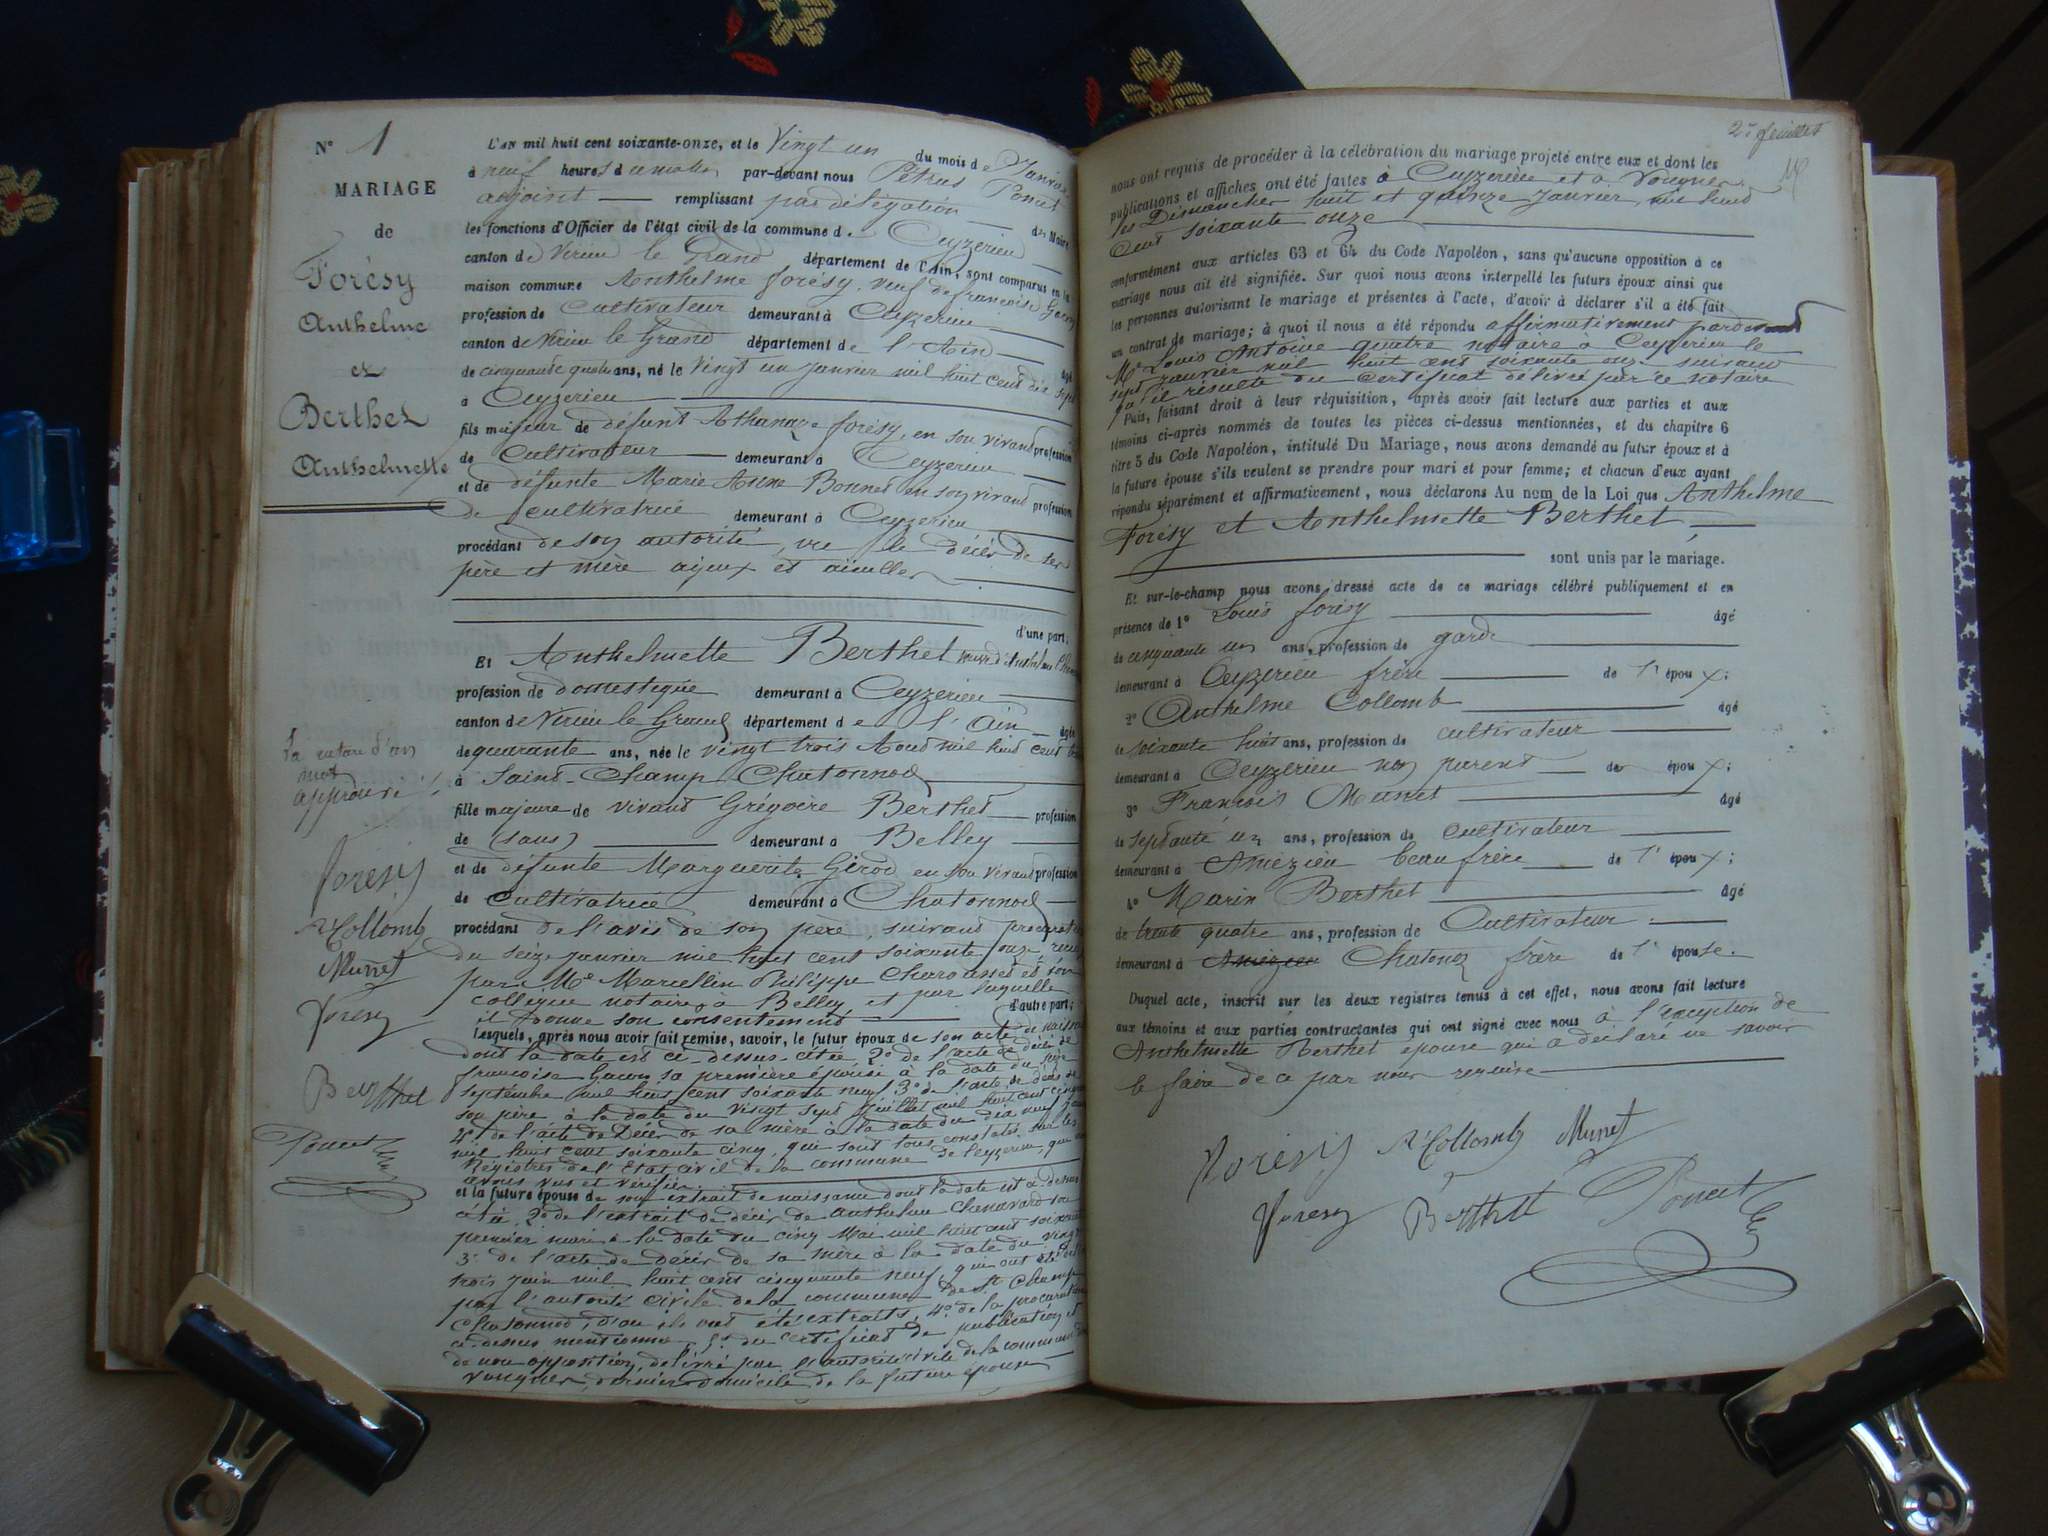 N° 1
MARIAGE
de
Forésy
Anthelme
et
Berthet
Anthelmette
L'AN mil huit cent soixante-onze, et le Vingt un du mois de Janvier
à neuf heures du matin par-devant nous Pétrus Poncet
adjoint remplissant par délégation du Maire
les fonctions d'Officier de l'état civil de la commune de Ceyzerieu
canton de Virieu le Grand département de l'Ain, sont comparus en la
maison commune Anthelme forésy, veuf de françoise
profession de Cultivateur demeurant à Ceyzerieu
canton de Virieu le Grand département de l'Ain âgé
de cinquante quatre ans, né le Vingt un janvier mil huit cent dix sept
à Ceyzerieu
fils majeur de défunt Athanaze forésy, en son vivant profession
de Cultivateur demeurant à Ceyzerieu
et de défunte Marie Anne Bonnet en son vivant profession
de cultivatrice demeurant à Ceyzerieu
procédant de son autorité, vu le décès de ses
père et mère ayeux et aïeulles
d'une part;
Et Anthelmette Berthet veuve d'Anthelme
profession de domestique demeurant à Ceyzerieu
canton de Virieu le Grand département de l'Ain âgée
de quarante ans, née le vingt trois Aout mil huit cent
à Saint-Champ Chatonnod
fille majeure de vivant Grégoire Berthet profession
de (sans) demeurant à Belley
et de défunte Marguerite Girod en son vivant profession
de Cultivatrice demeurant à Chatonnod
procédant de l'avis de son père, suivant procuration
du seize janvier mil huit cent soixante onze, reçue
par Me Marcellin Philippe Charasset et son
collègue notaires à Belley et par laquelle
il donne son consentement d'autre part;
Lesquels, après nous avoir fait remise, savoir, le futur époux de son acte de naissance
dont la date est ci-dessus citée 2° de l'acte de décès de
françoise sa première épouse à la date du
septembre mil huit cent soixante neuf 3° de l'acte de décès de
son père à la date du vingt sept juillet mil huit cent
4° de l'acte de décès de sa mère à la date du dix neuf
mil huit cent soixante cinq, qui sont tous constatés sur les
Registres de l'Etat civil de la commune de Ceyzerieu, que
avons vus et vérifiés
et la future épouse de son extrait de naissance dont la date est ci-dessus
citée, 2° de l'extrait de décès de Anthelme Chenavard son
premier mari à la date du cinq Mai mil huit cent soixante
3° de l'acte de décès de sa mère à la date du vingt
trois juin mil huit cent cinquante neuf, qui ont été
par l'autorité civile de la commune de St Champ
Chatonnod, d'où ils ont été extraits, 4° de la procuration
ci-dessus mentionnée 5° du certificat de publication et
de non opposition, délivré par l'autorité civile de la commune de
Vongnes, dernier domicile de la future épouse
la rature d'un
mot
approuvé
foresy
A Collomb
Munet
foresy
Berthet
Poncet
2me feuillet
nous ont requis de procéder à la célébration du mariage projeté entre eux et dont les
publications et affiches ont été faites à Ceyzerieu et à Vongnes
les Dimanches huit et quinze janvier, mil huit
cent soixante onze
conformément aux articles 63 et 64 du Code Napoléon, sans qu'aucune opposition à ce
mariage nous ait été signifiée. Sur quoi nous avons interpellé les futurs époux ainsi que
les personnes autorisant le mariage et présentes à l'acte, d'avoir à déclarer s'il a été fait
un contrat de mariage; à quoi il nous a été répondu affirmativement pardevant
Me Louis Antoine quatre notaire à Ceyzerieu le
sept janvier mil huit cent soixante onze suivant
qu'il résulte du certificat délivré par ce notaire
Puis, faisant droit à leur réquisition, après avoir fait lecture aux parties et aux
témoins ci-après nommés de toutes les pièces ci-dessus mentionnées, et du chapitre 6
titre 5 du Code Napoléon, intitulé Du Mariage, nous avons demandé au futur époux et à
la future épouse s'ils veulent se prendre pour mari et pour femme; et chacun d'eux ayant
répondu séparément et affirmativement, nous déclarons Au nom de la Loi que Anthelme
Forésy et Anthelmette Berthet
sont unis par le mariage.
Et sur-le-champ nous avons dressé acte de ce mariage célébré publiquement et en
présence de 1° Louis forésy âgé
de cinquante un ans, profession de garde
demeurant à Ceyzerieu frère de l'époux;
2° Anthelme Collomb âgé
de soixante huit ans, profession de cultivateur
demeurant à Ceyzerieu non parent des époux;
3° François Munet âgé
de septante un ans, profession de Cultivateur
demeurant à Ameyzieu beau frère de l'époux;
4° Marin Berthet âgé
de trente quatre ans, profession de Cultivateur
demeurant à Chatonod frère de l'épouse.
Duquel acte, inscrit sur les deux registres tenus à cet effet, nous avons fait lecture
aux témoins et aux parties contractantes qui ont signé avec nous à l'exception de
Anthelmette Berthet épouse qui a déclaré ne savoir
le faire de ce par nous requise
foresy A Collomb Munet
foresy Berthet Poncet